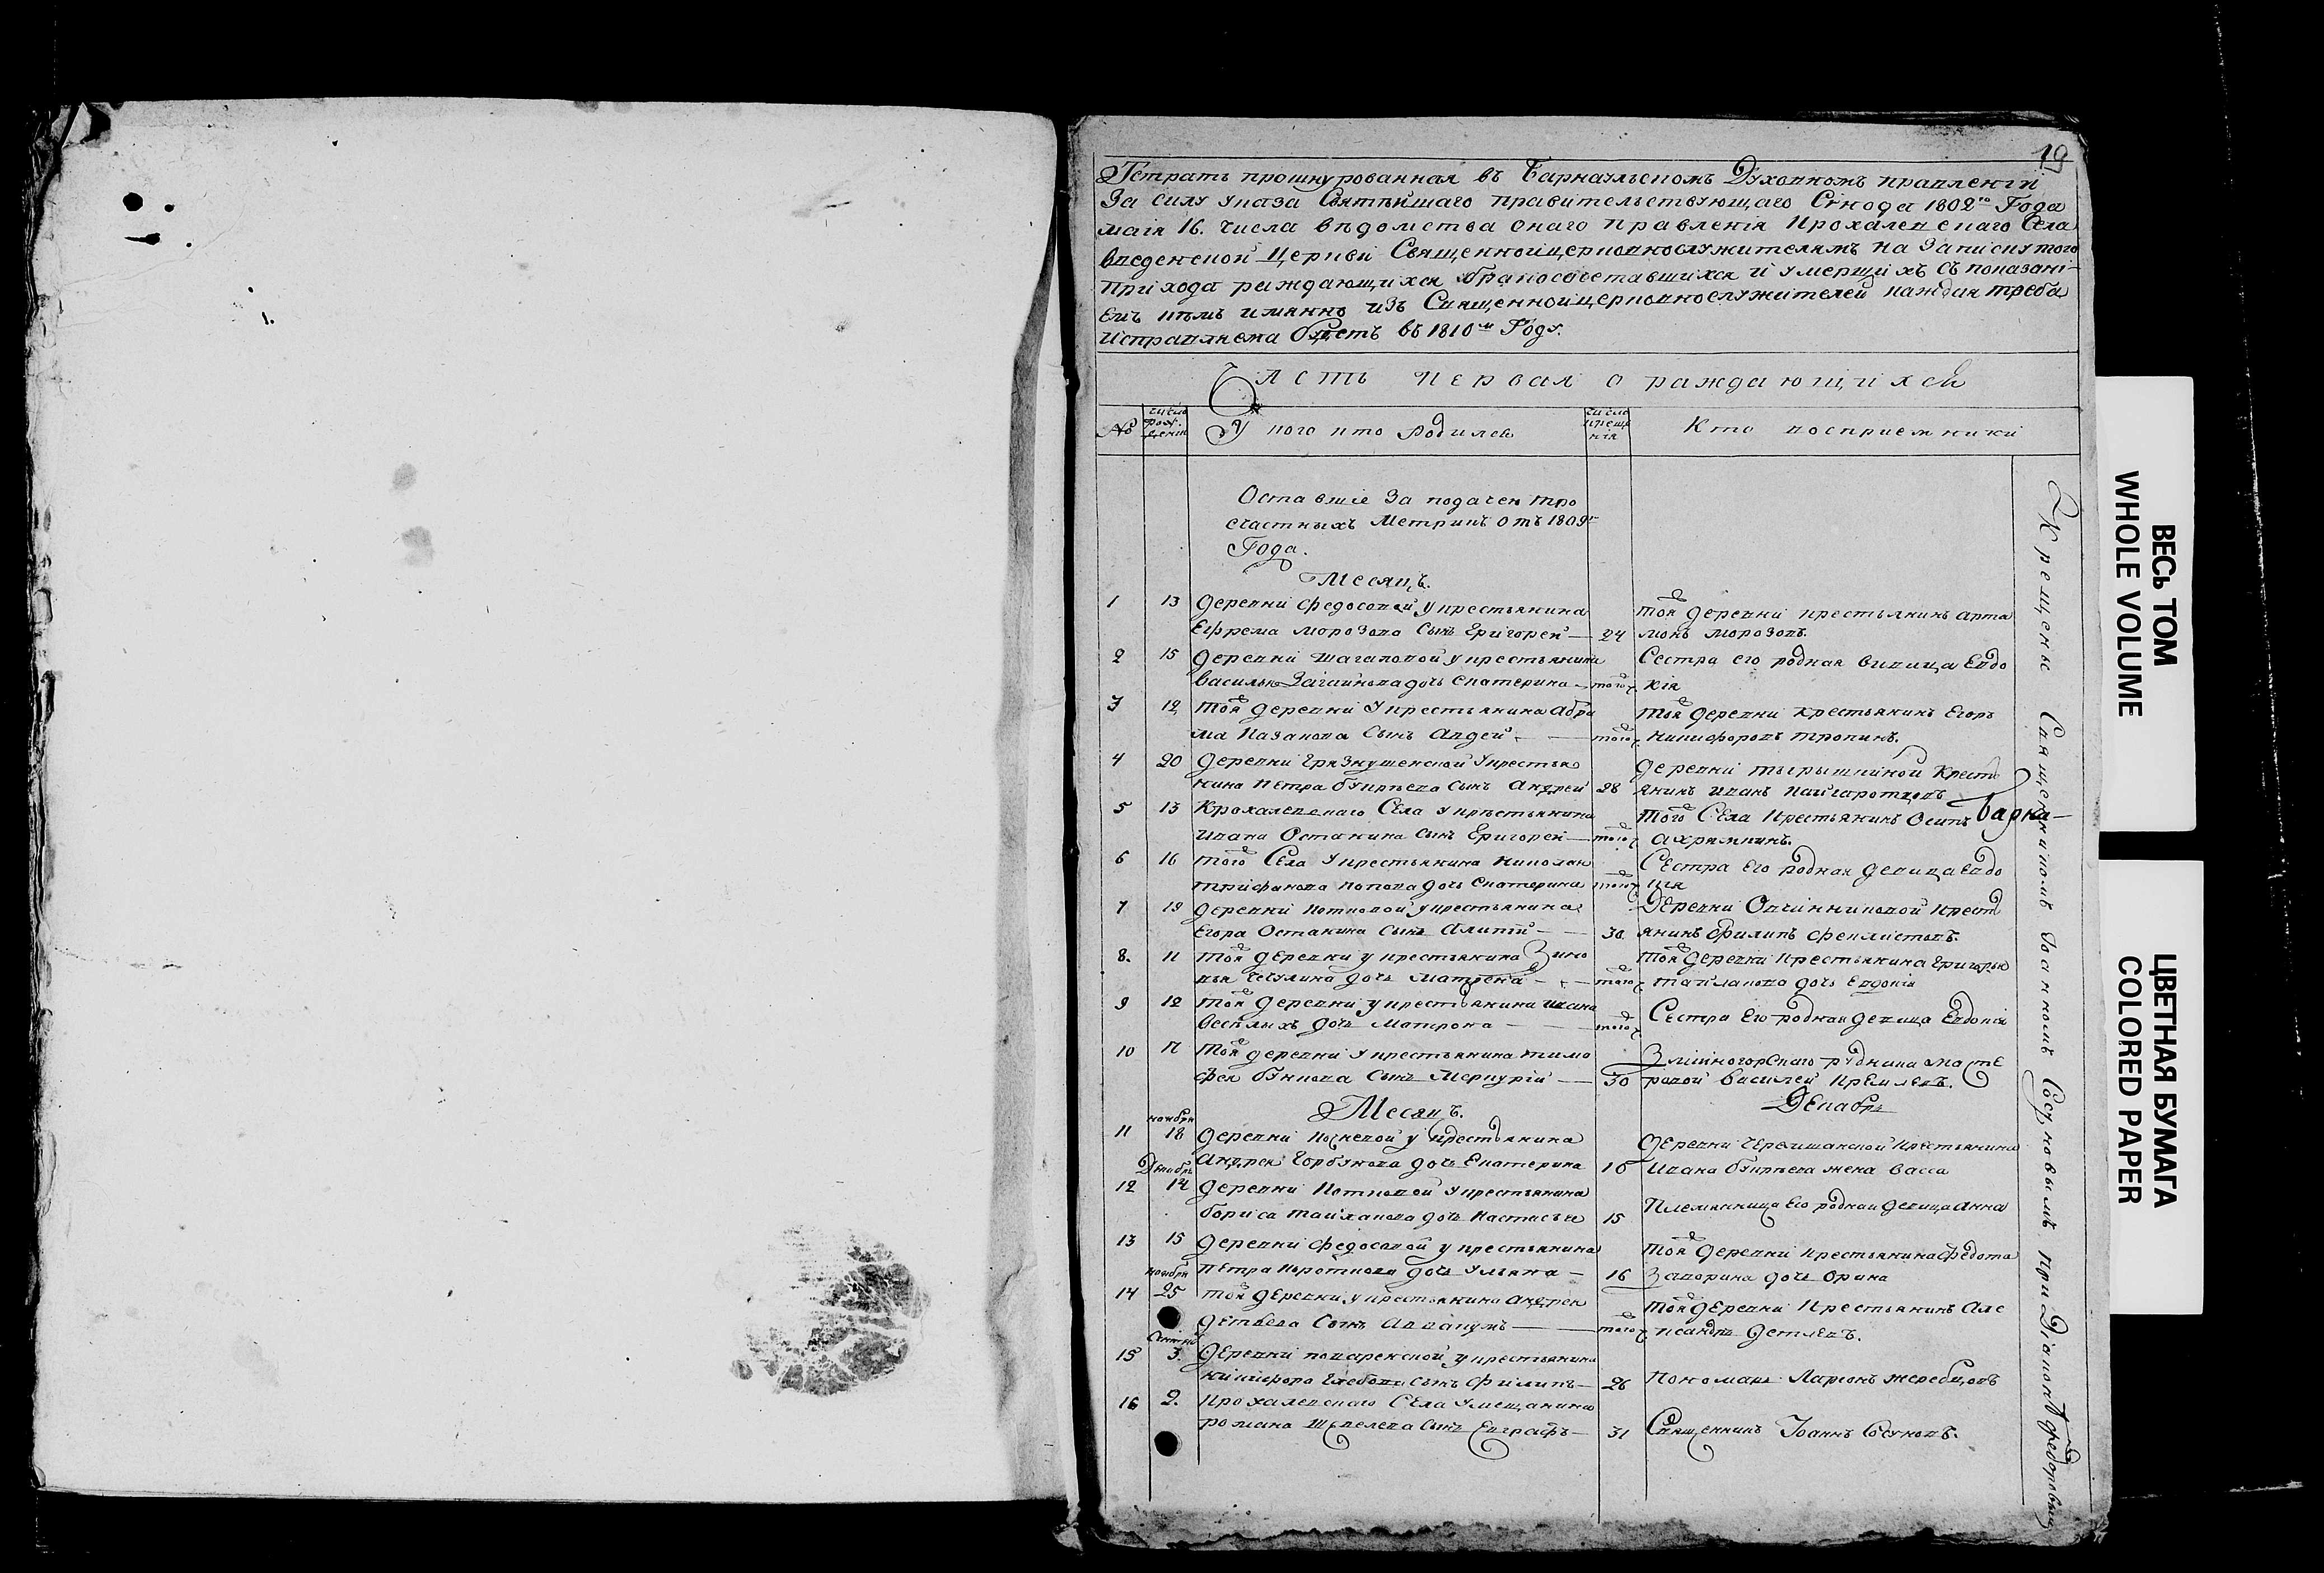 19
Тетрать прошнурованная въ Барнаульскомъ Духовномъ правленіи
За силу указа Святѣйшаго правительствующаго Сѵнода 1802го Года
маія 16. числа вѣдомства онаго правленія Крохалевскаго Села
введенской Церкви Священноицерковнослужителямъ на Записку того
прихода раждающихся бракосочетавшихся и умершихъ съ показані-
емъ кѣмъ имянно изъ Священноицерковнослужителей каждая треба
исправляема будетъ въ 1810м Году.
Часть первая о раждающихся
№
число рож-денія
У кого кто родился
число крещенія
Кто восприемники
Оставшіе За подачею тро
счастныхъ Метрикъ отъ 1809г
Года.
Месяцъ.
1 13 деревни федосовой у крестьянина
Ефрема морозова сынъ Григорей — 24
той деревни крестьянинъ арта
монъ морозовъ.
2 15 деревни шагаловой у крестьянина
василья Загайнова дочь Екатерина — того
Сестра его родная вдовица Евдо
кія
3 12 той деревни у крестьянина абра
ма Казанова сынъ Авдей — того
той деревни крестьянинъ Егоръ
никифоровъ тропинъ.
4 20 деревни грязнушенской у крестья
нина петра бункова сынъ Андрей 28
деревни тырышкиной крестъ
янинъ иванъ
5 13 Крохалевскаго Села у крестьянина
ивана Останина сынъ Григорей — того
того Села крестьянинъ Осипъ
Барна-
6 16 того Села у крестьянина николая
трифанова попова дочь Екатерина того
Сестра Его родная девица Евдо
кія
7 19 деревни котковой у крестьянина
Егора Останина сынъ Алипій — 30
Деревни Овчинниковой крест
янинъ филипъ феклистовъ.
8. 11 той деревни у крестьянина Зино
вья чечулина дочь Матрена — того
той деревни крестьянина григорья
тайланова дочь Евдокія
9 12 той деревни у крестьянина ивана
веселыхъ дочь Матрона — того
Сестра Его родная девица Евдокія
10 11 той деревни у крестьянина тимо
фея бункова сынъ Меркурій — 30
Змѣиногорскаго рудника масте
ровой василей
Месяцъ. Декабрь
ноября
11 18 деревни у крестьянина
Андрея Горбунова дочь Екатерина 10
деревни черемшанской крестьянина
ивана жена васса
Декабрь
12 14 деревни котковой у крестьянина
бориса тайланова дочь Настасья 15
Племянница Его родная девица Анна
13 15 деревни федосовой у крестьянина
петра короткова дочь Ульяна — 16
той деревни крестьянина федота
Заворина дочь орина
ноября
14 25 той деревни у крестьянина андрея
детлева сынъ Аввакумъ — того
той деревни крестьянинъ Але
ксандръ детлевъ.
15 3. деревни поваренской у крестьянина
никифора глебова сынъ филипъ — 26
пономарь Ларіонъ жеребцовъ
16 2. крохалевскаго Села у мещанина
романа Шевелева сынъ Евграфъ — 31
Священникъ Іоаннъ Сосуновъ.
Крещены Священникомъ Іоанномъ Сосуновымъ при Діаконѣ
ВЕСЬ ТОМ
WHOLE VOLUME
ЦВЕТНАЯ БУМАГА
COLORED PAPER